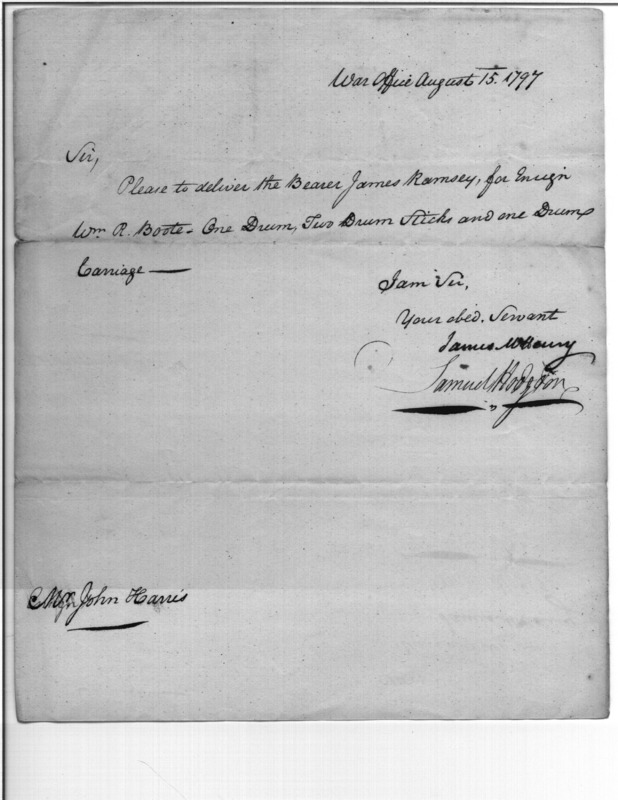 War Office August 15. 1797
Sir,
Please to deliver the Bearer James Ramsey, for Ensign
Wm R. Boote - One Drum, Two Drum Sticks and one Drum
Carriage —
I am Sir,
Your obed. Servant
James McHenry
Samuel Hodgdon
Mr John Harris